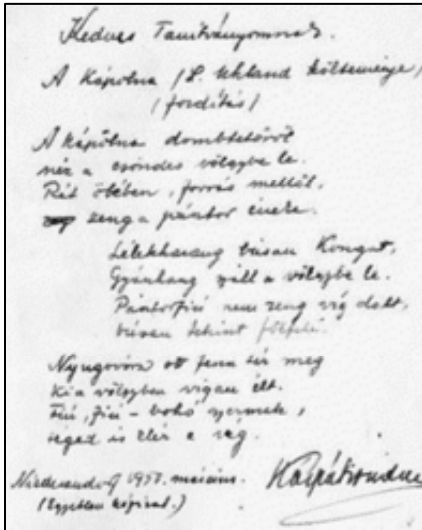 Kedves Tanítványomnak.
A Kápolna (L. Uhland költeménye)
(fordítás)
A kápolna dombtetőről
néz a csöndes völgybe le.
Rét ölében, forrás mellől,
zeng a pásztor éneke.
Lélekharang búsan kongat,
Gyászhang száll a völgybe le.
Pásztorfiú nem zeng víg dalt,
búsan tekint fölfelé.
Nyugovóra ott fenn tér meg
Ki a völgyben vígan élt.
Fiú, fiú – bohó gyermek,
téged is elér a vég.
1957.
(Egyetlen kézirat.)